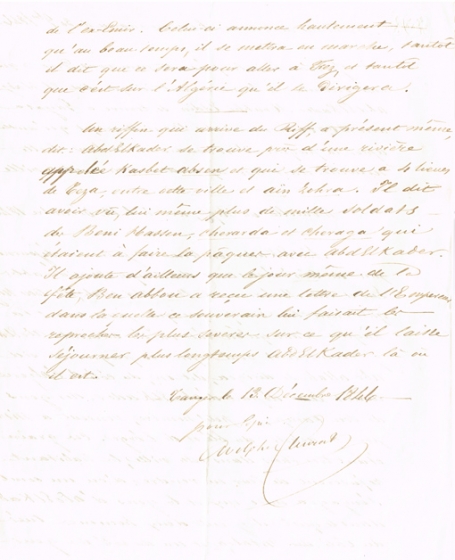 de l'ex-Emir. Celui ci annonce hautement
qu'au beau temps, il se mettra en marche, tantôt
il dit que ce sera pour aller à Fez, et tantôt
que c'est sur l'Algérie qu'il se dirigera.
Un riffen qui arrive du Riff, à présent même,
dit: AbdElKader se trouve près d'une rivière
appelée Kasbet et qui se trouve à 4 lieues
de Teza, entre cette ville et aïn Zohra. Il dit
avoir vu, lui même plus de mille soldats
de Beni Hassen, cherarda et cheraga qui
étaient à faire la pâque avec AbdElKader.
Il ajoute d'ailleurs que le jour même de la
fête, Bou abbou a reçu une lettre de l'Empereur
dans laquelle ce souverain lui faisait les
reproches les plus sévères sur ce qu'il laisse
séjourner plus longtemps AbdElKader là où
il est.
Tanger le 13 Décembre 1846
pour